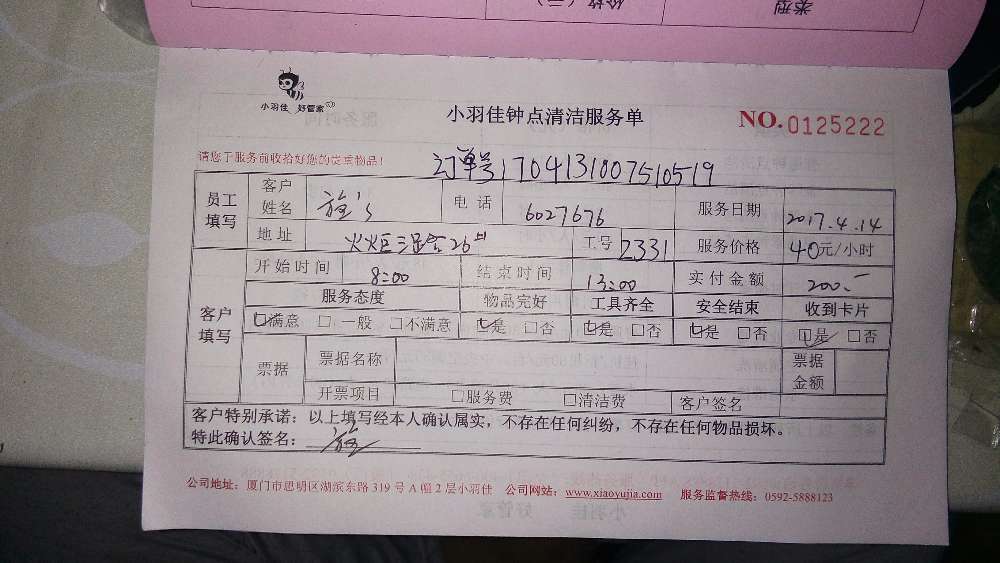 价格（元）
类型
小羽佳 好管家
小羽佳钟点清洁服务单
NO.0125222
请您于服务前收拾好您的贵重物品！
订单号1704131007510519
员工填写 客户姓名 电话 6027676 服务日期 2017.4.14
地址 火炬 26# 工号 2331 服务价格 40元/小时
客户填写 开始时间 8:00 结束时间 13:00 实付金额 200.-
服务态度 物品完好 工具齐全 安全结束 收到卡片
☑满意 □一般 □不满意 ☑是 □否 ☑是 □否 ☑是 □否 ☑是 □否
票据 票据名称 票据金额
开票项目 □服务费 □清洁费 客户签名
客户特别承诺：以上填写经本人确认属实，不存在任何纠纷，不存在任何物品损坏。
特此确认签名：
公司地址：厦门市思明区湖滨东路 319 号 A 幢 2 层小羽佳 公司网站：www.xiaoyujia.com 服务监督热线：0592-5888123